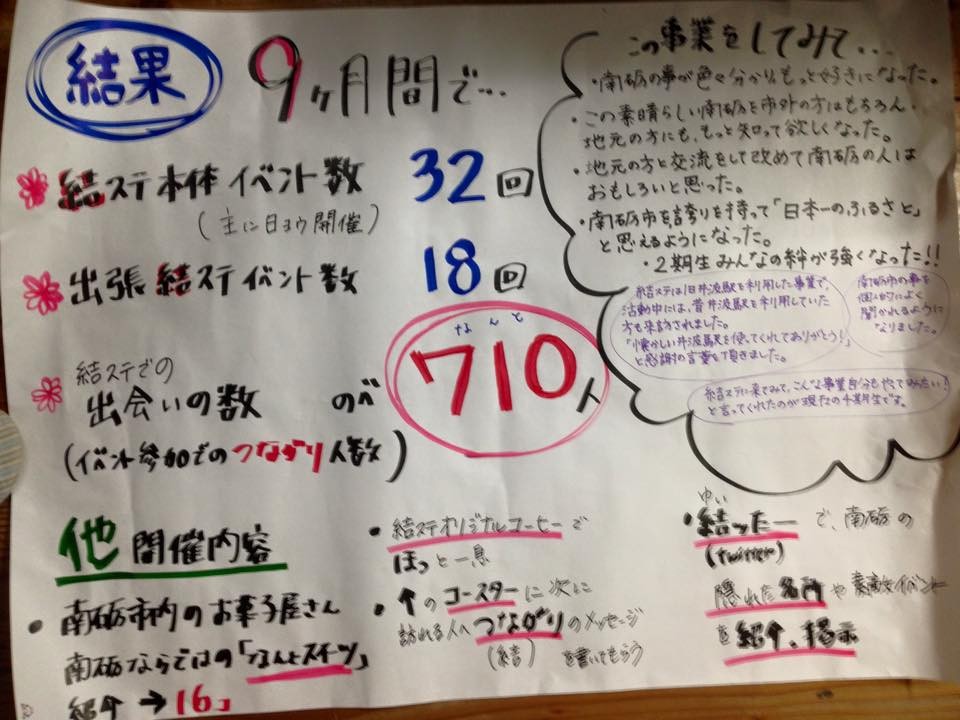 結果
9ヶ月間で...
結ステ本体イベント数 32回
(主に日ヨウ開催)
出張結ステイベント数 18回
結ステでの
出会いの数 のべ
なんと
710人
(イベント参加でのつながり人数)
この事業をしてみて...
・南砺の事が色々分かりもっと好きになった。
・この素晴らしい南砺を市外の方はもちろん・
地元の方にも、もっと知って欲しくなった。
・地元の方と交流をして改めて南砺の人は
おもしろいと思った。
・南砺市を誇りを持って「日本一のふるさと」
と思えるようになった。
・2期生みんなの絆が強くなった!!
結ステは旧井波駅を利用した事業で、
活動中には、昔井波駅を利用していた
方も来訪されました。
「懐かしい井波駅を使ってくれてありがとう!」
と感謝の言葉を頂きました。
南砺市の事を
個人的によく
聞かれるように
なりました。
結ステに来てみて、こんな事業自分もやってみたい!
と言ってくれたのが現在の4期生です。
他 開催内容
・南砺市内のお菓子屋さん
南砺ならではの「なんとスイーツ」
紹介→16コ
・結ステオリジナルコーヒーで
ほっと一息
・↑のコースターに次に
訪れる人へつながりのメッセージ
(結) を書いてもらう
ゆい
・結ったーで、南砺の
(twitter)
隠れた名所や素敵イベント
を紹介、掲示